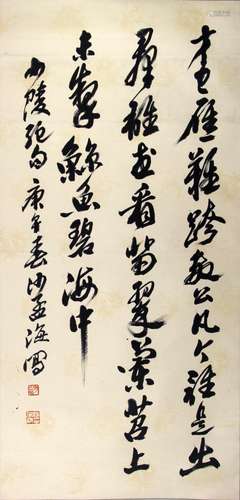 才力應難跨數公凡今誰是出
羣雄或看翡翠蘭苕上
未掣鯨魚碧海中
少陵絕句庚午春沙孟海